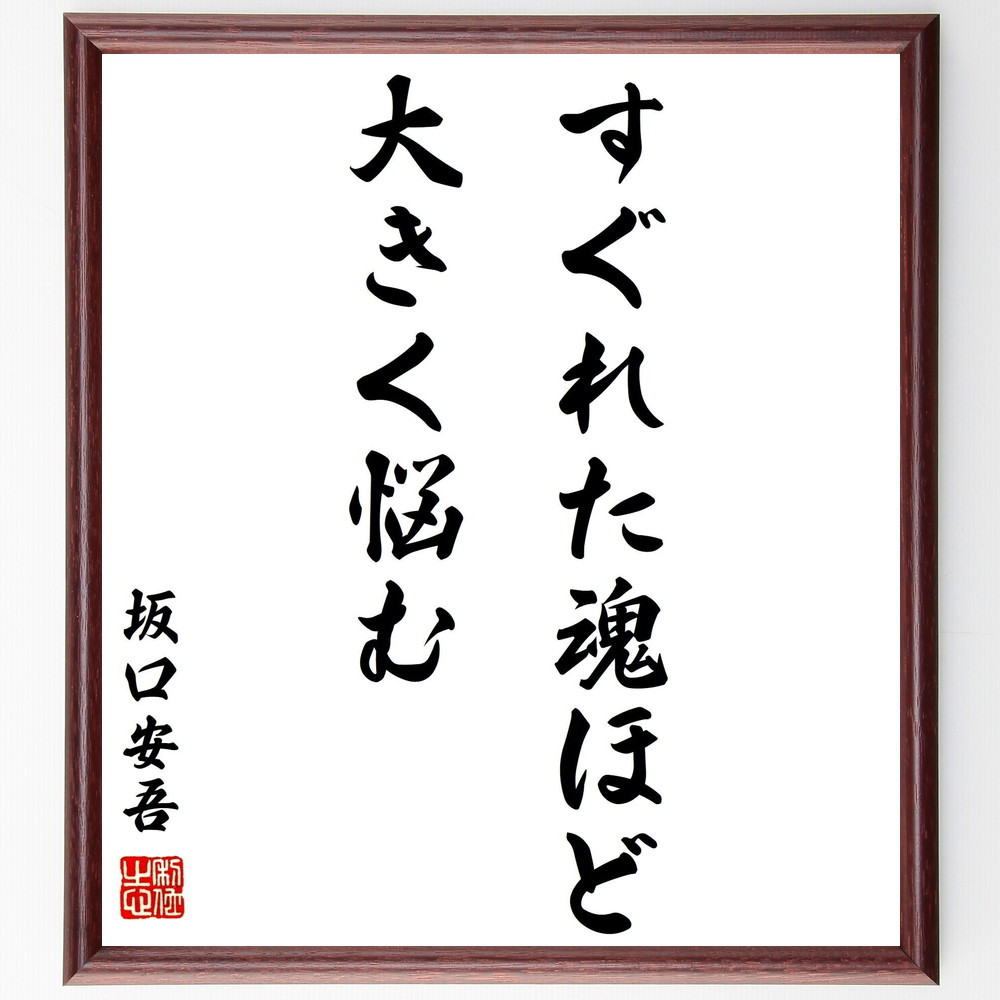 すぐれた魂ほど
大きく悩む
坂口安吾